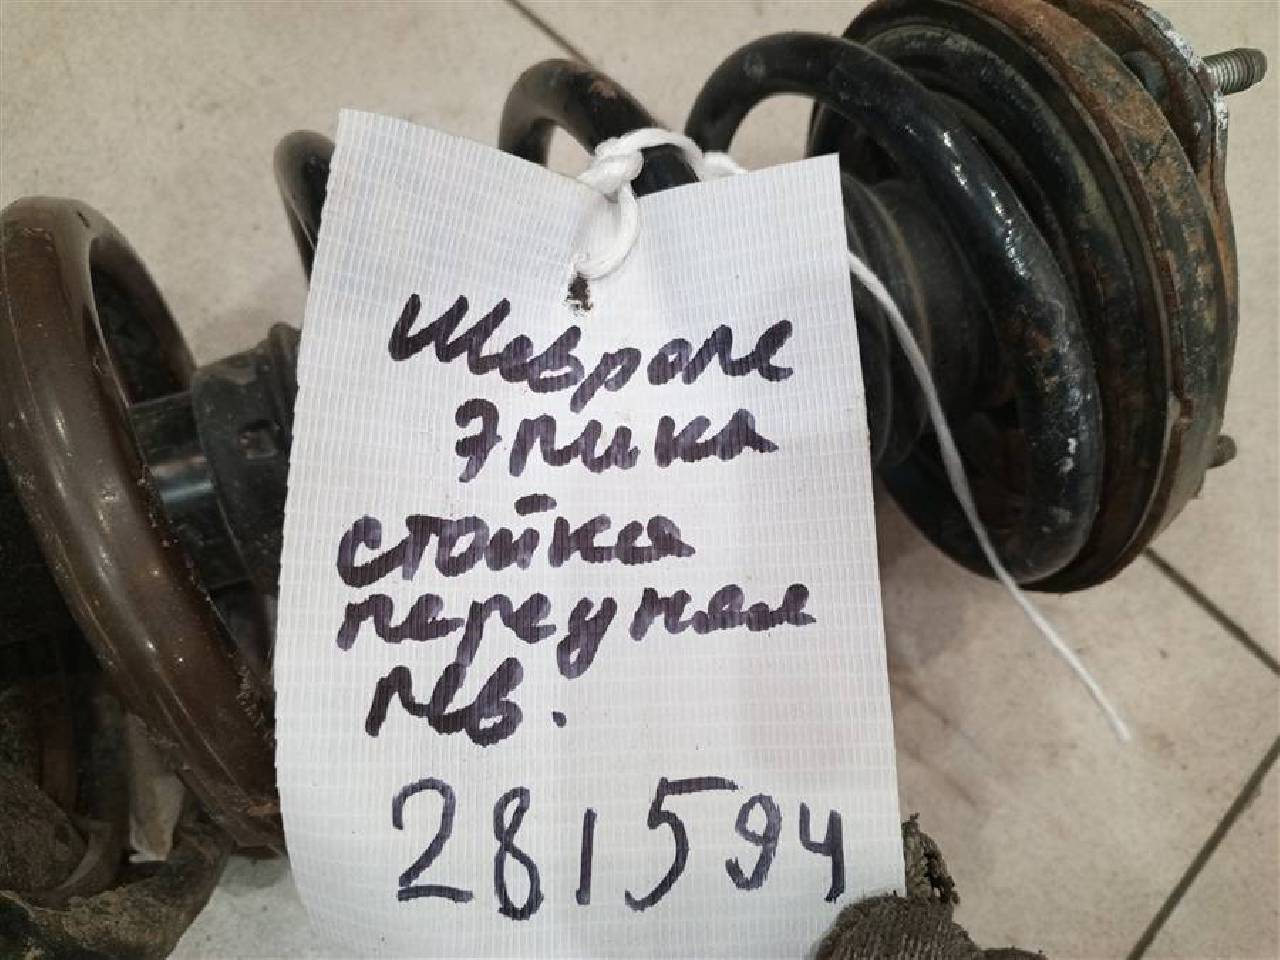 Шевроле
Эпика
стойка
передняя
лев.
281594